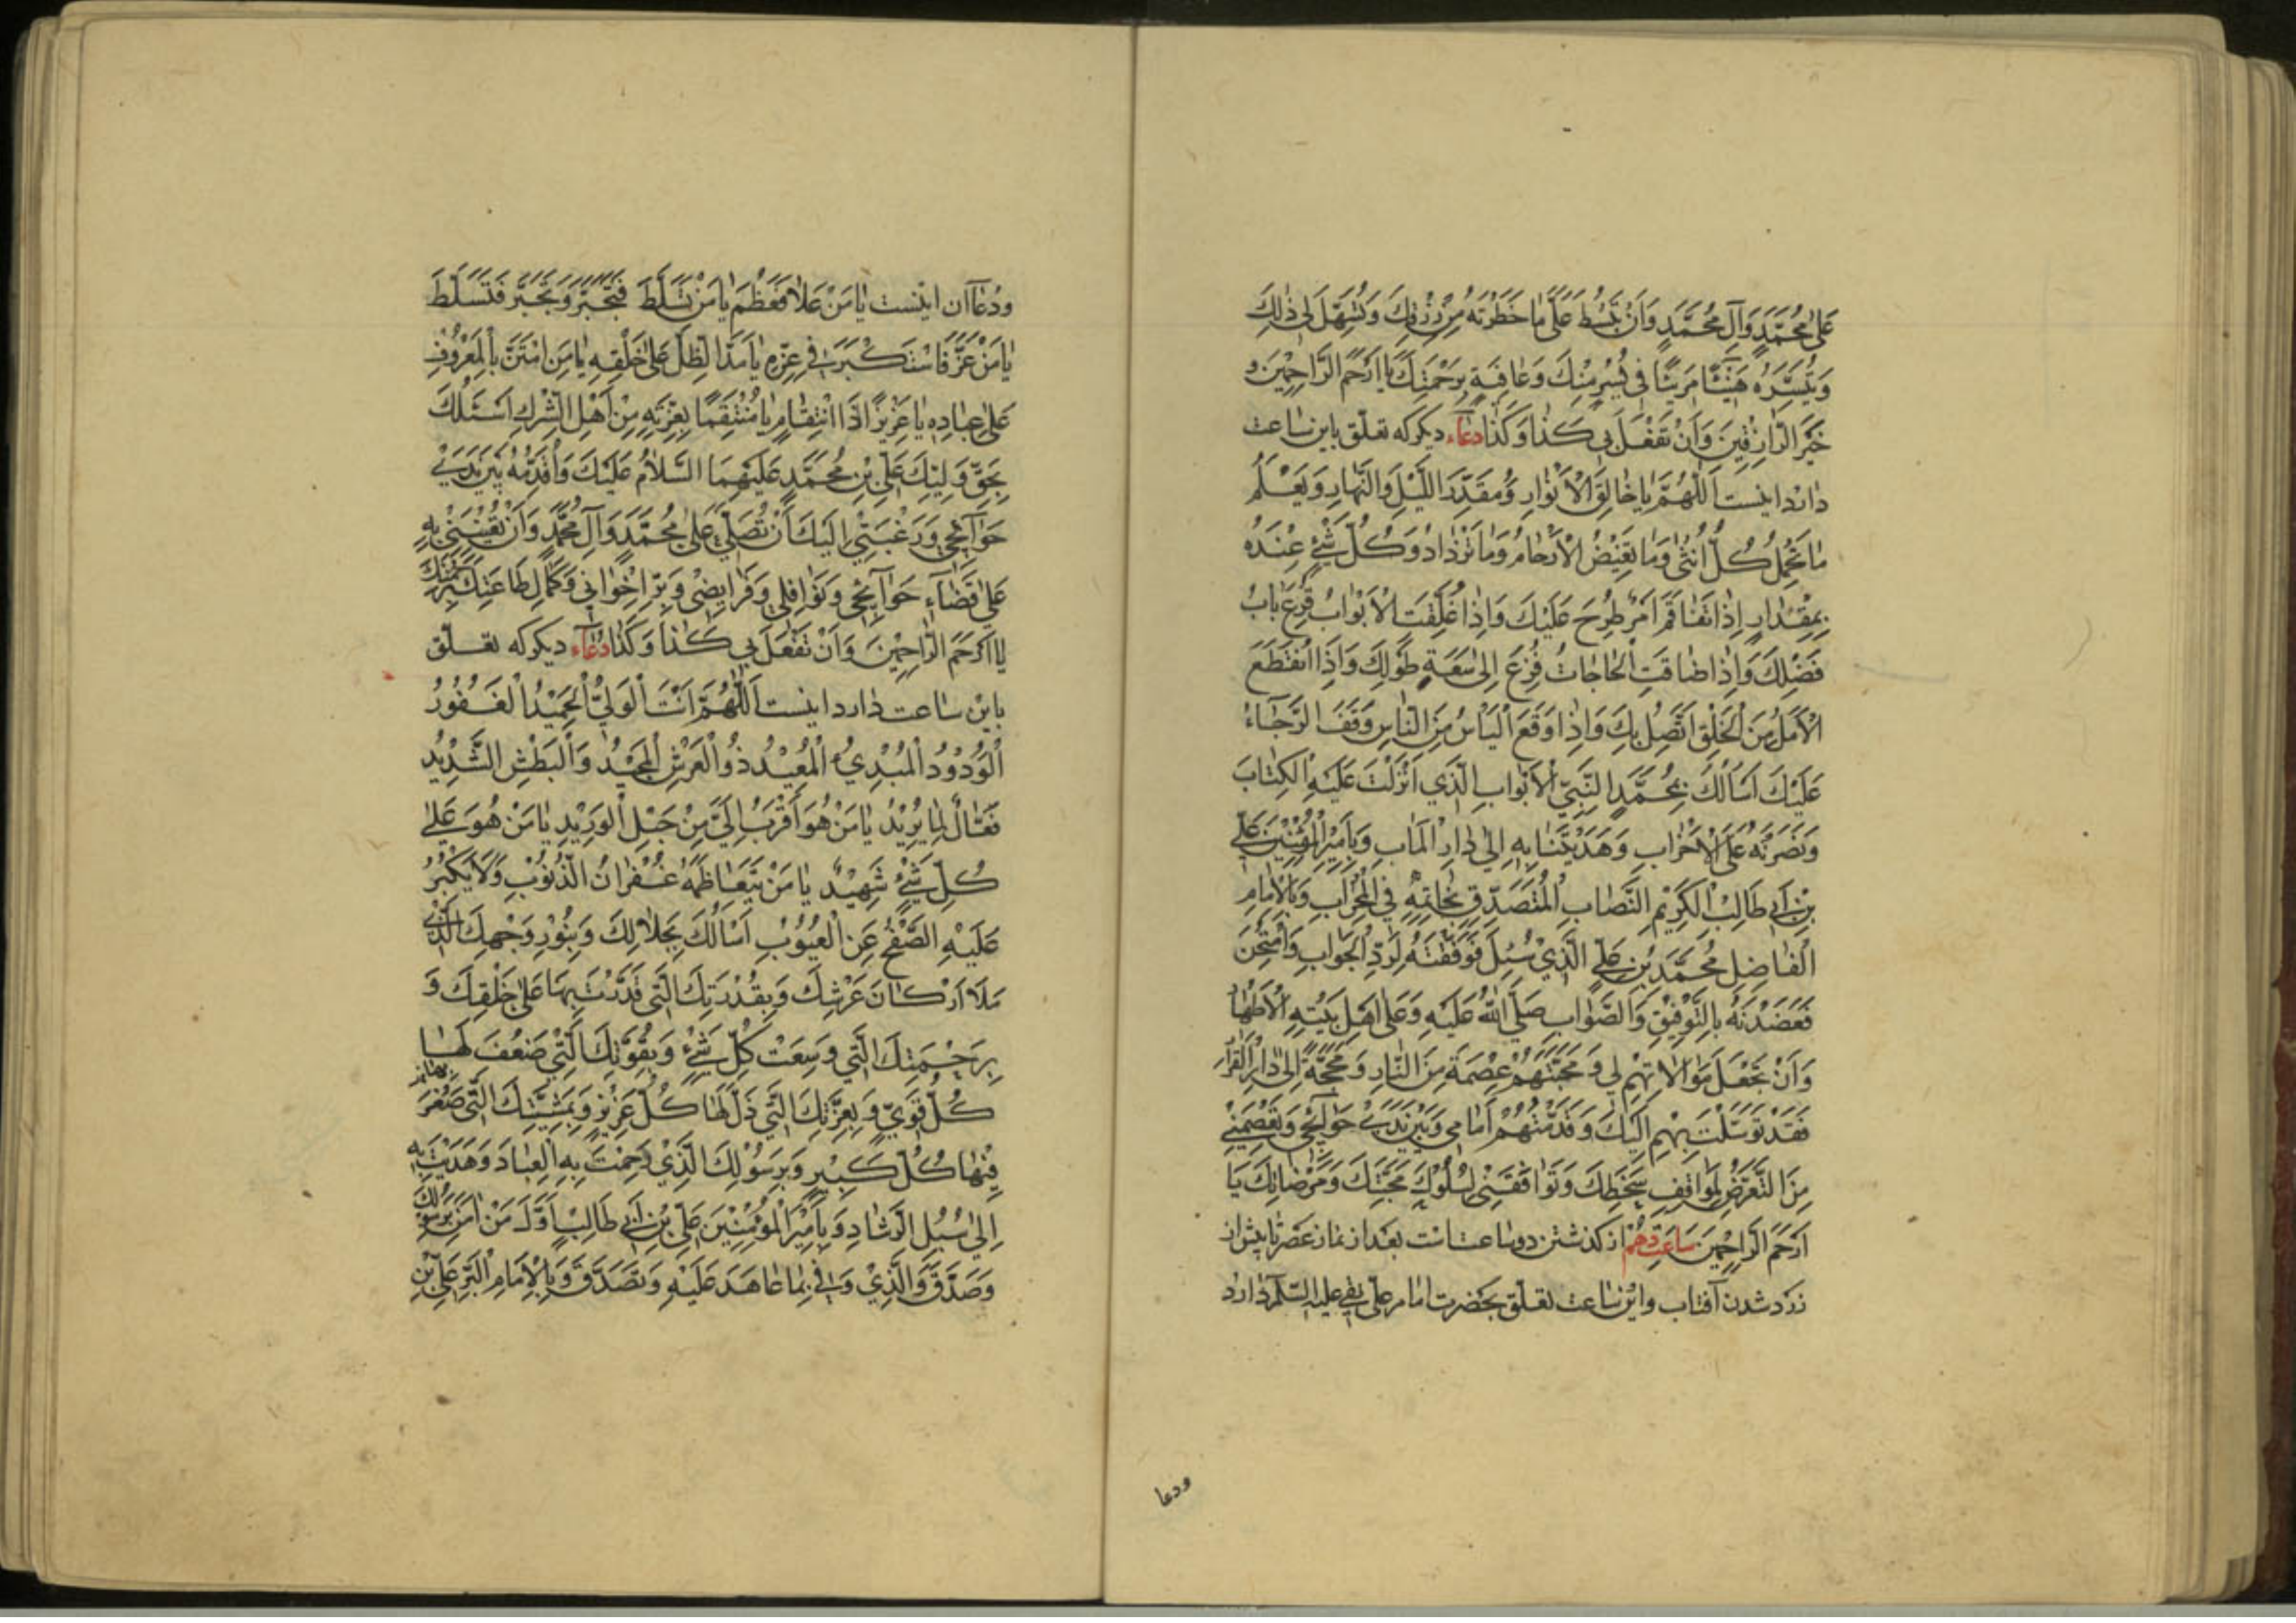 عَلٰى مُحَمَّدٍ وَآلِ مُحَمَّدٍ وَاَنْ تَبْسُطَ عَلَىَّ مَا حَظَرْتَهُ مِنْ رِزْقِكَ وَتُسَهِّلَ لِى ذٰلِكَ
وَتُيَسِّرَهُ هَنِيئًا مَرِيئًا فِى يُسْرٍ مِنْكَ وَعٰافِيَةٍ بِرَحْمَتِكَ يٰا اَرْحَمَ الرَّاحِمِينَ وَ
خَيْرَ الرّٰازِقِينَ وَاَنْ تَفْعَلَ بِى كَذٰا وَكَذٰا دعآء ديكر كه تعلّق باين ساعت
دارد اينست اَللّٰهُمَّ يٰا خٰالِقَ الْاَنْوٰارِ وَمُقَدِّرَ اللَّيْلِ وَالنَّهٰارِ وَيَعْلَمُ
مٰا تَحْمِلُ كُلُّ اُنْثٰى وَمٰا تَغِيضُ الْاَرْحٰامُ وَمٰا تَزْدٰادُ وَكُلُّ شَىْءٍ عِنْدَهُ
بِمِقْدٰارٍ اِذٰا تَفٰاقَمَ اَمْرٌ طُرِحَ عَلَيْكَ وَاِذٰا غُلِّقَتِ الْاَبْوٰابُ قُرِعَ بٰابُ
فَضْلِكَ وَاِذٰا ضٰاقَتِ الْحٰاجٰاتُ فُزِعَ اِلٰى سَعَةِ طَوْلِكَ وَاِذَا انْقَطَعَ
الْاَمَلُ مِنَ الْخَلْقِ اتَّصَلَ بِكَ وَاِذٰا وَقَعَ الْيَاْسُ مِنَ النّٰاسِ وَقَفَ الرَّجٰاءُ
عَلَيْكَ اَسْاَلُكَ بِمُحَمَّدٍ النَّبِىِّ الْاَوّٰابِ الَّذِى اَنْزَلْتَ عَلَيْهِ الْكِتٰابَ
وَنَصَرْتَهُ عَلَى الْاَحْزٰابِ وَهَدَيْتَنٰا بِهِ اِلٰى دٰارِ الْمَاٰبِ وَبِاَمِيرِ الْمُؤْمِنِينَ عَلِىِّ
بْنِ اَبِى طٰالِبٍ الْكَرِيْمِ النِّصٰابِ الْمُتَصَدِّقِ بِخٰاتَمِهِ فِى الْمِحْرٰابِ وَبِالْاِمٰامِ
الْفٰاضِلِ مُحَمَّدِ بْنِ عَلِىٍّ الَّذِىْ سُئِلَ فَوَفَّقْتَهُ لِرَدِّ الْجَوٰابِ وَامْتُحِنَ
فَعَضَدْتَهُ بِالتَّوْفِيْقِ وَالصَّوٰابِ صَلَّى اللّٰهُ عَلَيْهِ وَعَلٰى اَهْلِ بَيْتِهِ الْاَطْهٰارِ
وَاَنْ تَجْعَلَ مُوٰالاتَهُمْ لِى وَمَحَبَّتَهُمْ عِصْمَةً مِنَ النّٰارِ وَمَحَجَّةً اِلٰى دٰارِ الْقَرٰارِ
فَقَدْ تَوَسَّلْتُ بِهِمْ اِلَيْكَ وَقَدَّمْتُهُمْ اَمٰامِى وَبَيْنَ يَدَىْ حَوٰائِجِى وَتَعْصِمَنِىْ
مِنَ التَّعَرُّضِ لِمَوٰاقِفِ سَخَطِكَ وَتُوٰافِقَنِى لِسُلُوْكِ مَحَبَّتِكَ وَمَرْضٰاتِكَ يٰا
اَرْحَمَ الرّٰاحِمِينَ ساعت دهم از كذشتن دو ساعتست بعد از نماز عصر تا پيش از
زرد شدن آفتاب واين ساعت تعلّق بحضرت امام على نقى عليه السّلم دارد
ودعا
ودعآء آن اينست يٰا مَنْ عَلٰا فَعَظُمَ يٰا مَنْ تَسَلَّطَ فَتَجَبَّرَ وَتَجَبَّرَ فَتَسَلَّطَ
يٰا مَنْ عَزَّ فَاسْتَكْبَرَ فِى عِزِّهِ يٰا مَنْ مَدَّ الظِّلَّ عَلٰى خَلْقِهِ يٰا مَنِ امْتَنَّ بِالْمَعْرُوفِ
عَلٰى عِبٰادِهِ يٰا عَزِيزًا ذَا انْتِقٰامٍ يٰا مُنْتَقِمًا بِعِزَّتِهِ مِنْ اَهْلِ الشِّرْكِ اَسْئَلُكَ
بِحَقِّ وَلِيِّكَ عَلِىِّ بْنِ مُحَمَّدٍ عَلَيْهِمَا السَّلٰامُ عَلَيْكَ وَاُقَدِّمُهُ بَيْنَ يَدَىْ
حَوٰآئِجِى وَرَغْبَتِى اِلَيْكَ اَنْ تُصَلِّىَ عَلٰى مُحَمَّدٍ وَآلِ مُحَمَّدٍ وَاَنْ تُعِيْنَنِىْ بِهِ
عَلٰى قَضٰآءِ حَوٰآئِجِى وَنَوٰافِلِى وَفَرٰايِضِى وَبِرِّ اِخْوٰانِى وَكَمٰالِ طٰاعَتِكَ بِرَحْمَتِكَ
يٰا اَرْحَمَ الرّٰاحِمِينَ وَاَنْ تَفْعَلَ بِى كَذٰا وَكَذٰا دعآء ديكر كه تعلّق
باين ساعت دارد اينست اَللّٰهُمَّ اَنْتَ الْوَلِىُّ الْحَمِيْدُ الْغَفُوْرُ
الْوَدُوْدُ الْمُبْدِئُ الْمُعِيْدُ ذُو الْعَرْشِ الْمَجِيْدُ وَالْبَطْشِ الشَّدِيْدِ
فَعّٰالٌ لِمٰا يُرِيْدُ يٰا مَنْ هُوَ اَقْرَبُ اِلَىَّ مِنْ حَبْلِ الْوَرِيْدِ يٰا مَنْ هُوَ عَلٰى
كُلِّ شَىْءٍ شَهِيْدٌ يٰا مَنْ يَتَعٰاظَمُهُ غُفْرٰانُ الذُّنُوْبِ وَلَا يَكْبُرُ
عَلَيْهِ الصَّفْحُ عَنِ الْعُيُوْبِ اَسْاَلُكَ بِجَلٰالِكَ وَبِنُوْرِ وَجْهِكَ الَّذِى
مَلَاَ اَرْكٰانَ عَرْشِكَ وَبِقُدْرَتِكَ الَّتِى قَدَّرْتَ بِهَا عَلٰى خَلْقِكَ وَ
بِرَحْمَتِكَ الَّتِى وَسِعَتْ كُلَّ شَىْءٍ وَبِقُوَّتِكَ الَّتِى ضَعُفَ لَهٰا
كُلُّ قَوِىٍّ وَبِعِزَّتِكَ الَّتِى ذَلَّ لَهٰا كُلُّ عَزِيْزٍ وَبِمَشِيَّتِكَ الَّتِى صَغُرَ
فِيْهٰا كُلُّ كَبِيْرٍ وَبِرَسُوْلِكَ الَّذِىْ رَحِمْتَ بِهِ الْعِبٰادَ وَهَدَيْتَ بِهِ
اِلٰى سُبُلِ الرَّشٰادِ وَبِاَمِيْرِ الْمُؤْمِنِيْنَ عَلِىِّ بْنِ اَبِى طٰالِبٍ اَوَّلَ مَنْ اٰمَنَ بِرَسُوْلِكَ
وَصَدَّقَ وَالَّذِىْ وَفٰى بِمٰا عٰاهَدَ عَلَيْهِ وَتَصَدَّقَ وَبِالْاِمٰامِ الْبَرِّ عَلِىِّ بْنِ